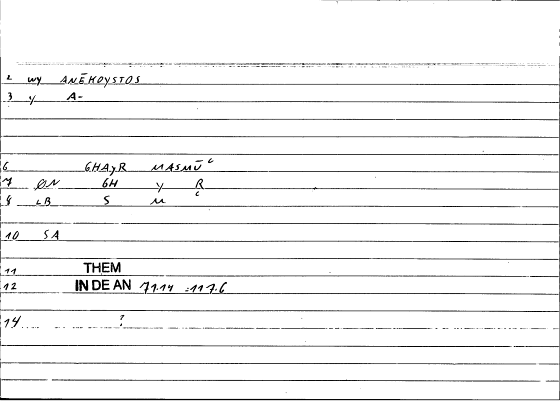 2 wy ANĒKOYSTOS
3 y A-
6 GHAyR MASMŪ c
7 ØN GH y R
8 LB S M c
10 SA
11 THEM
12 IN DE AN 71.14 =117.6
14 ?